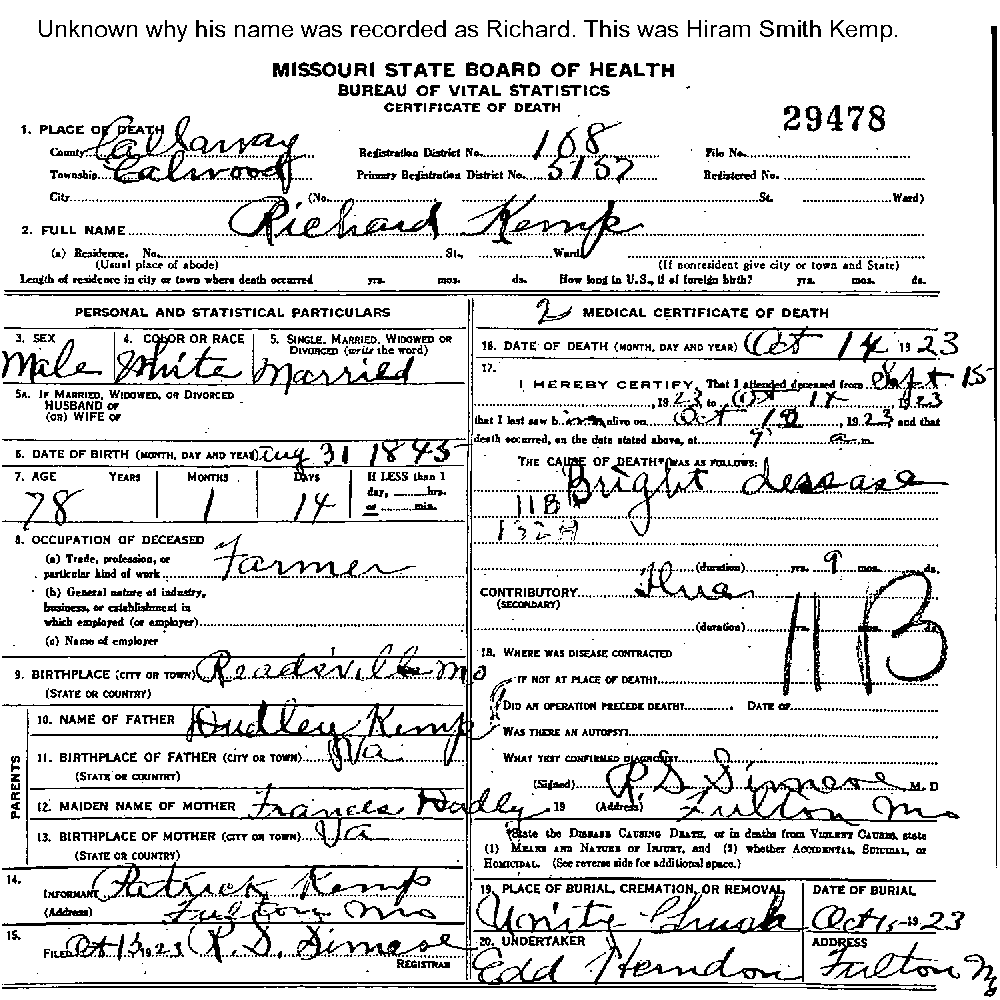 Unknown why his name was recorded as Richard. This was Hiram Smith Kemp.
MISSOURI STATE BOARD OF HEALTH
BUREAU OF VITAL STATISTICS
CERTIFICATE OF DEATH
29478
1. PLACE OF DEATH
County Callaway Registration District No. 108 File No.
Township Calwood Primary Registration District No. 5157 Registered No.
City (No. St. Ward)
2. FULL NAME Richard Kemp
(a) Residence. No. St., Ward.
(Usual place of abode) (If nonresident give city or town and State)
Length of residence in city or town where death occurred yrs. mos. ds. How long in U.S., if of foreign birth? yrs. mos. ds.
PERSONAL AND STATISTICAL PARTICULARS
3. SEX Male
4. COLOR OR RACE White
5. SINGLE, MARRIED, WIDOWED OR DIVORCED (write the word) Married
5A. IF MARRIED, WIDOWED, OR DIVORCED
HUSBAND OF
(OR) WIFE OF
6. DATE OF BIRTH (MONTH, DAY AND YEAR) Aug 31 1845
7. AGE YEARS MONTHS DAYS If LESS than 1
day, hrs.
or min.
78 1 14
8. OCCUPATION OF DECEASED
(a) Trade, profession, or
particular kind of work Farmer
(b) General nature of industry,
business, or establishment in
which employed (or employer)
(c) Name of employer
9. BIRTHPLACE (CITY OR TOWN) Readsville Mo
(STATE OR COUNTRY)
PARENTS
10. NAME OF FATHER Dudley Kemp
11. BIRTHPLACE OF FATHER (CITY OR TOWN) Va
(STATE OR COUNTRY)
12. MAIDEN NAME OF MOTHER Frances Dudly
13. BIRTHPLACE OF MOTHER (CITY OR TOWN) Va
(STATE OR COUNTRY)
14. INFORMANT Patrick Kemp
(Address) Fulton Mo
15. FILED Oct 15 1923 R. S. Simcoe
REGISTRAR
2 MEDICAL CERTIFICATE OF DEATH
16. DATE OF DEATH (MONTH, DAY AND YEAR) Oct 14 1923
17.
I HEREBY CERTIFY, That I attended deceased from Sept 15
, 1923 to Oct 14 1923
that I last saw him alive on Oct , 1923 and that
death occurred, on the date stated above, at 9 a.m.
THE CAUSE OF DEATH* WAS AS FOLLOWS:
Bright desease
11B
132A
(duration) yrs. 9 mos. ds.
CONTRIBUTORY Flue
(SECONDARY)
(duration) yrs. mos. ds.
11 B
18. WHERE WAS DISEASE CONTRACTED
IF NOT AT PLACE OF DEATH?
DID AN OPERATION PRECEDE DEATH? DATE OF
WAS THERE AN AUTOPSY?
WHAT TEST CONFIRMED DIAGNOSIS?
(Signed) R. S. Simcoe M. D
, 19 (Address) Fulton Mo
*State the DISEASE CAUSING DEATH, or in deaths from VIOLENT CAUSES, state
(1) MEANS AND NATURE OF INJURY, and (2) whether ACCIDENTAL, SUICIDAL, or
HOMICIDAL. (See reverse side for additional space.)
19. PLACE OF BURIAL, CREMATION, OR REMOVAL DATE OF BURIAL
Unite Chuch Oct 1923
20. UNDERTAKER ADDRESS
Edd Herndon Fulton Mo